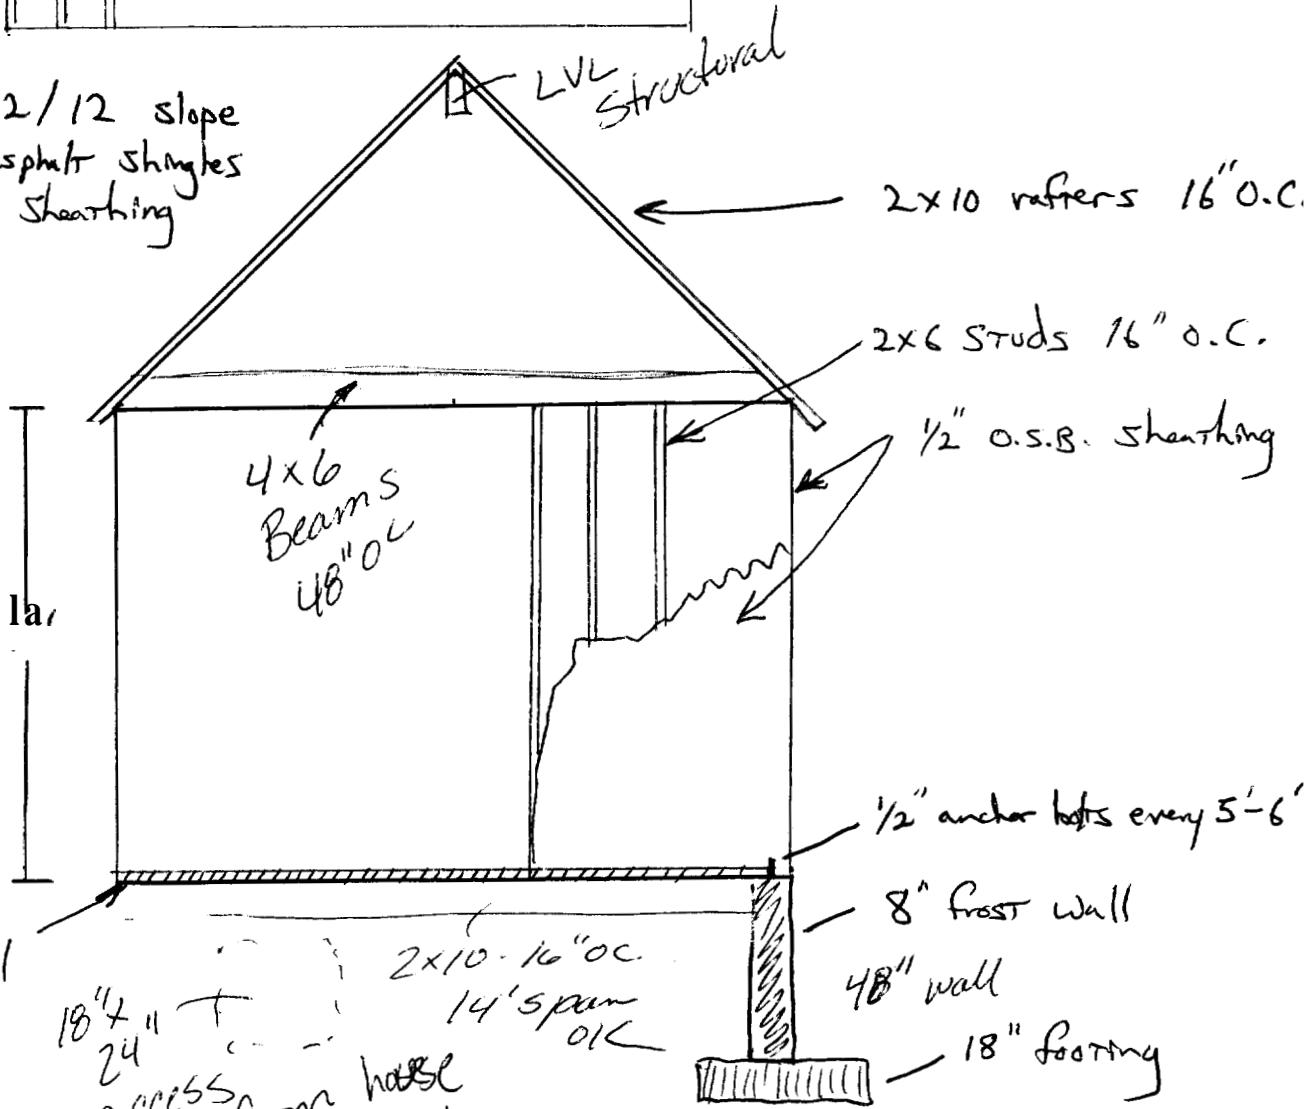 LVL
Structural
2/12 slope
sphalt shingles
sheathing
2x10 rafters 16" O.C.
2x6 STUDS 16" O.C.
1/2" O.S.B. sheathing
4x6
Beams
48" OC
la
1/2" anchor bolts every 5'-6'
8" frost wall
2x10 - 16" OC.
14' span
OK
48" wall
18" x
24"
18" footing
house